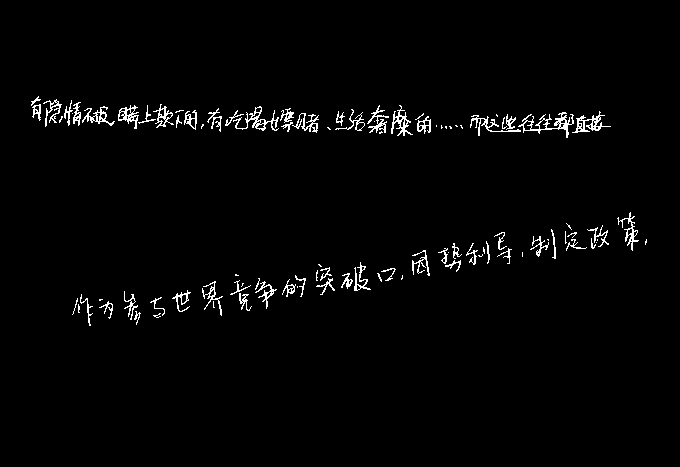 有隐情不报、瞒上欺下的,有吃喝嫖赌、生活奢糜的……而这些往往都直接
作为参与世界竞争的突破口,因势利导,制定政策,